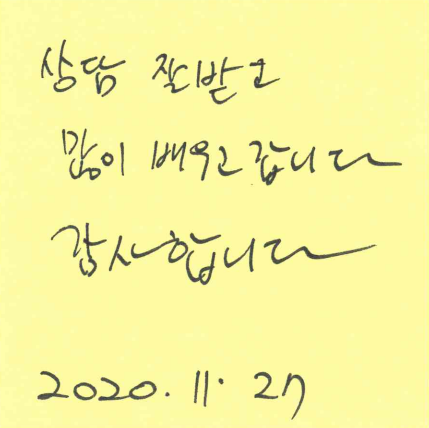 상담 잘받고
많이 배우고 갑니다
감사합니다
2020. 11. 27